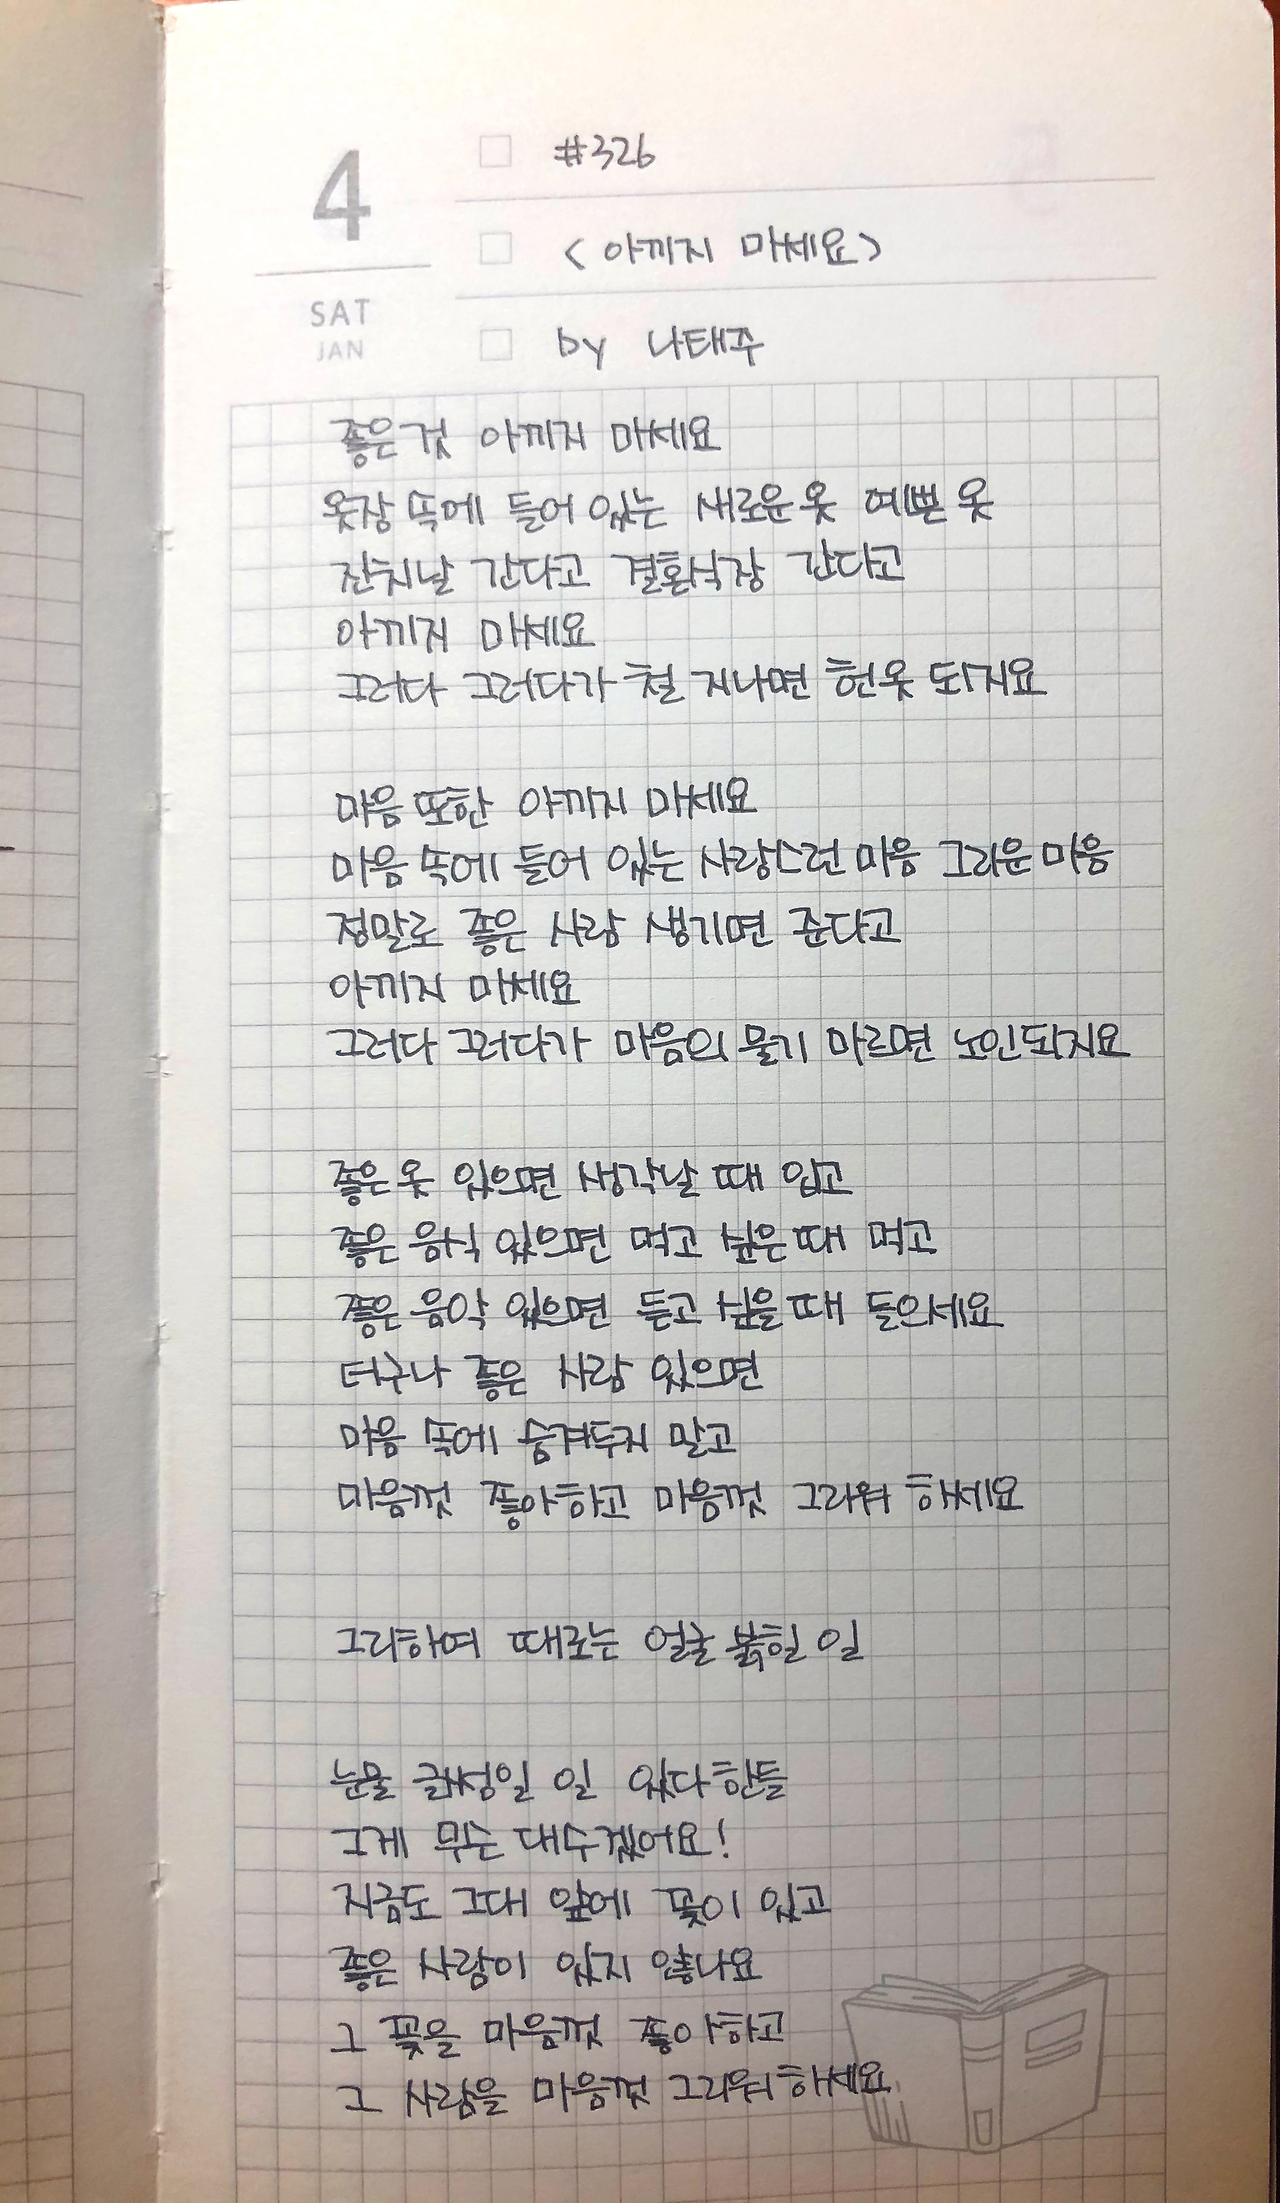 4
SAT
JAN
#326
<아끼지 마세요>
by 나태주
좋은 것 아끼지 마세요
옷장 속에 들어 있는 새로운 옷 예쁜 옷
잔칫날 간다고 결혼식장 간다고
아끼지 마세요
그러다 그러다가 철 지나면 헌옷 되지요
마음 또한 아끼지 마세요
마음 속에 들어 있는 사랑스런 마음 그리운 마음
정말로 좋은 사람 생기면 준다고
아끼지 마세요
그러다 그러다가 마음의 물기 마르면 노인되지요
좋은 옷 있으면 생각날 때 입고
좋은 음식 있으면 먹고 싶은 때 먹고
좋은 음악 있으면 듣고 싶을 때 들으세요
더구나 좋은 사람 있으면
마음 속에 숨겨두지 말고
마음껏 좋아하고 마음껏 그리워 하세요
그리하여 때로는 얼굴 붉힐 일
눈물 글썽일 일 있다 한들
그게 무슨 대수겠어요!
지금도 그대 앞에 꽃이 있고
좋은 사람이 있지 않나요
그 꽃을 마음껏 좋아하고
그 사람을 마음껏 그리워 하세요